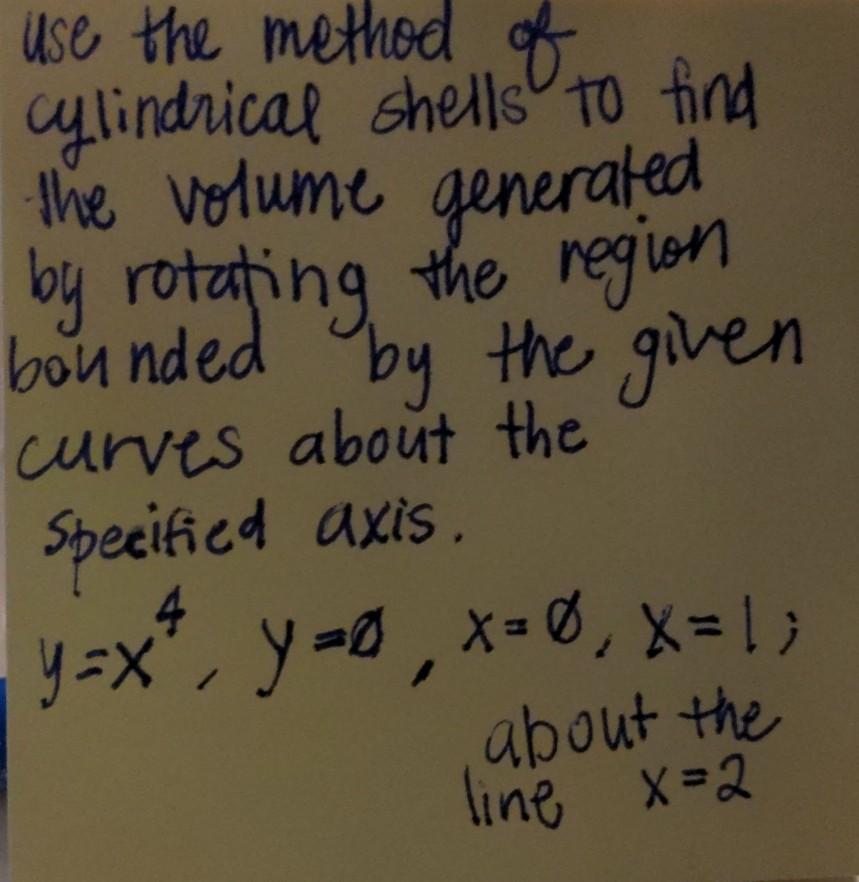 use the method of
cylindrical shells to find
the volume generated
by rotating the region
bounded by the given
curves about the
specified axis.
y=x⁴, y=0, x=0, x=1;
about the
line x=2